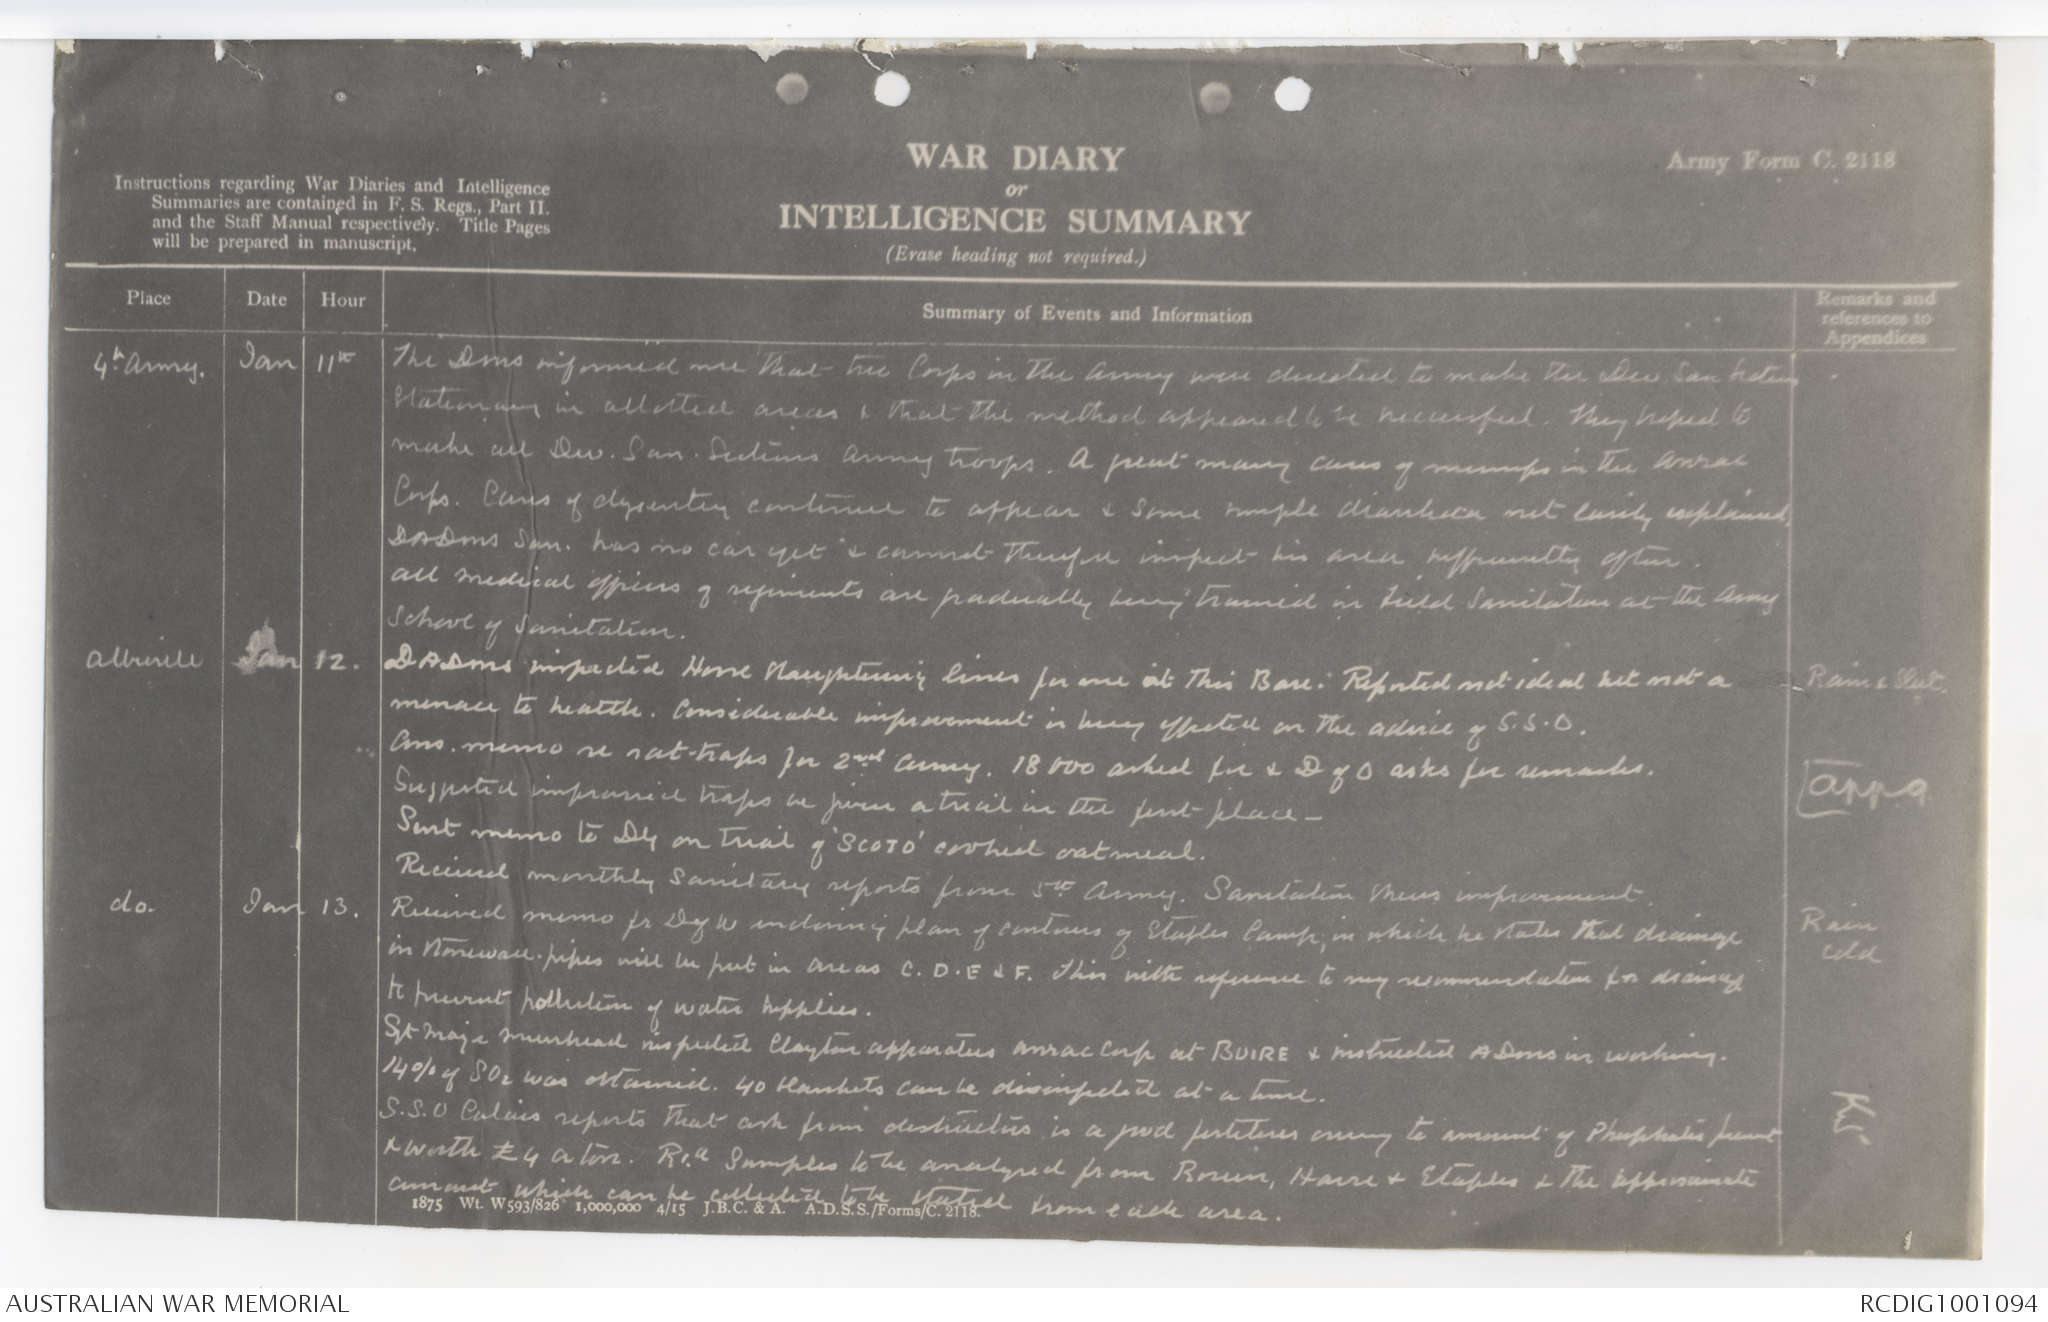 WAR DIARY
or
INTELLIGENCE SUMMARY
(Erase heading not required.)
Army Form C. 2118
Instructions regarding War Diaries and Intelligence
Summaries are contained in F. S. Regs., Part II.
and the Staff Manual respectively. Title Pages
will be prepared in manuscript.
Place Date Hour Summary of Events and Information Remarks and references to Appendices
4th Army. Jan 11th The DMS informed me that the Corps in the Army were directed to make the Div. San Sections
Stationary in allotted areas & that the method appeared to be successful. They hoped to
make all Div. San. Sections Army troops. A great many cases of mumps in the Anzac
Corps. Cases of dysentery continue to appear & some simple diarrhoea not easily explained.
DADMS San. has no car yet & cannot therefore inspect his area sufficiently often.
All medical officers of regiments are gradually being trained in Field Sanitation at the Army
School of Sanitation.
Abbeville Jan 12. DADMS inspected Horse Slaughtering lines for me at this Base. Reported not ideal but not a Rain & Sleet.
menace to health. Considerable improvement is being effected on the advice of S.S.O.
Ans. memo re rat-traps for 2nd Army. 18000 asked for & D of O asks for remarks. App 9
Suggested improvised traps be given a trial in the first place —
Sent memo to DG on trial of 'SCOTO' cooked oatmeal.
Received monthly Sanitary reports from 5th Army. Sanitation shews improvement.
do. Jan 13. Received memo fr D of W enclosing plan of contours of Etaples Camp, in which he states that drainage Rain cold
in stoneware pipes will be put in areas C. D. E & F. This with reference to my recommendation for drainage
to prevent pollution of water supplies.
Sgt Major Muirhead inspected Clayton apparatus Anzac Corp at BUIRE & instructed ADMS in working.
14% of SO2 was obtained. 40 blankets can be disinfected at a time.
S.S.O Calais reports that ash from destructors is a good fertiliser owing to amount of Phosphates present
& worth £4 a ton. Samples to be analysed from Rouen, Havre & Etaples & the approximate
amount which can be collected to be stated from each area.
1875 Wt. W593/826 1,000,000 4/15 J.B.C. & A. A.D.S.S./Forms/C. 2118.
AUSTRALIAN WAR MEMORIAL
RCDIG1001094